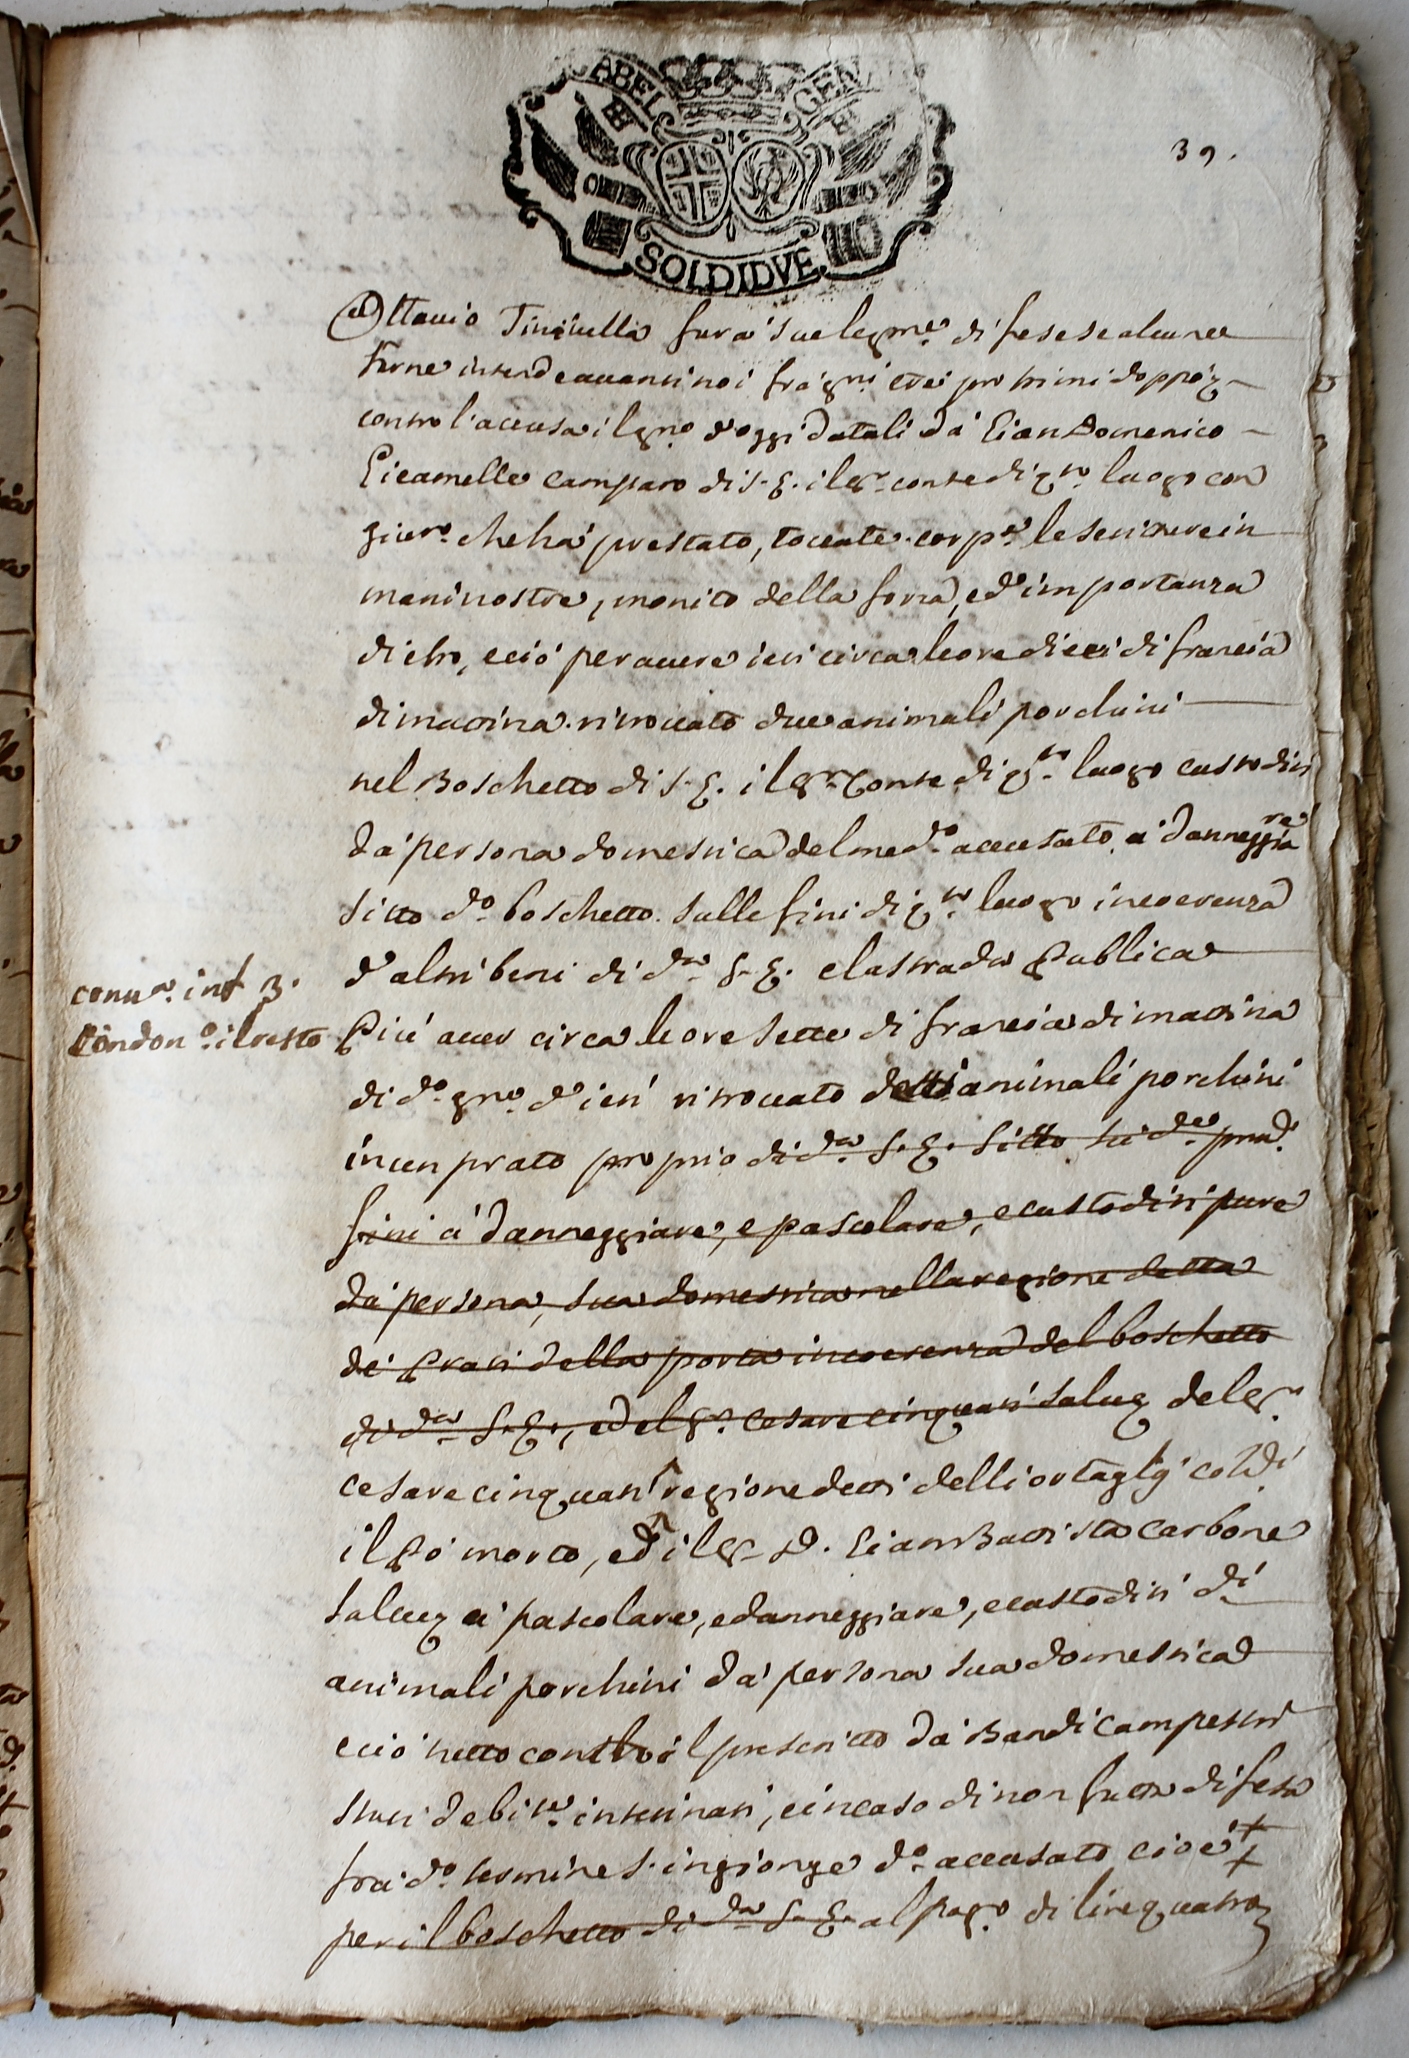 GABEL GEN
SOLDI DVE
39.
Ottavio Tinivella farà sue leg.me difese se alcune
farne intende avanti noi frà gni trei prossimi doppo
contro l'accusa il gno d'oggi datali dà Gian Domenico
Picamelle camparo di S. E. il Sr. conte di qto. luogo con
giurto. che hà prestato, toccate corp.te le scritture in
mani nostre, monito della forza, ed importanza
di esso, e ciò per avere ieri circa le ore dieci di francia
di mattina ritrovato due animali porchini
nel Boschetto di S. E. il Sr. Conte di qto. luogo custoditi
dà persona domestica del medo. accusato, à danneggiare
sitto do. boschetto sulle fini di qto. luogo in coerenza
d'altri beni di da. S. E. e la strada Publica
Più aver circa le ore sette di francia di mattina
di do. gno. d'ieri ritrovato detti animali porchini
in un prato proprio di da. S. E. sitto su de. pred.
fini à danneggiare, e pascolare, e custoditi pure
dà persona sua domestica nella regione detta
de' Prati della porta in coerenza del boschetto
di da. S. E., ed el Sr. Cesare Cinquati Saluz del Sr.
Cesare Cinquati regione detti delli ortaglj coldi
il Pò morto, ed il Sr. D. Giam Battista Carbone
Saluz à pascolare, e danneggiare, e custoditi di
animali porchini dà persona sua domestica
e ciò tutto contro il prescritto dà Bandi Campestri
stati debite. interinati, e in caso di non fatta difesa
frà do. termine s'ingionge do. accusato cioè
per il boschetto di da. S. E. al pago. di lire quatro
conv.a in £ 3.
Condono. il resto